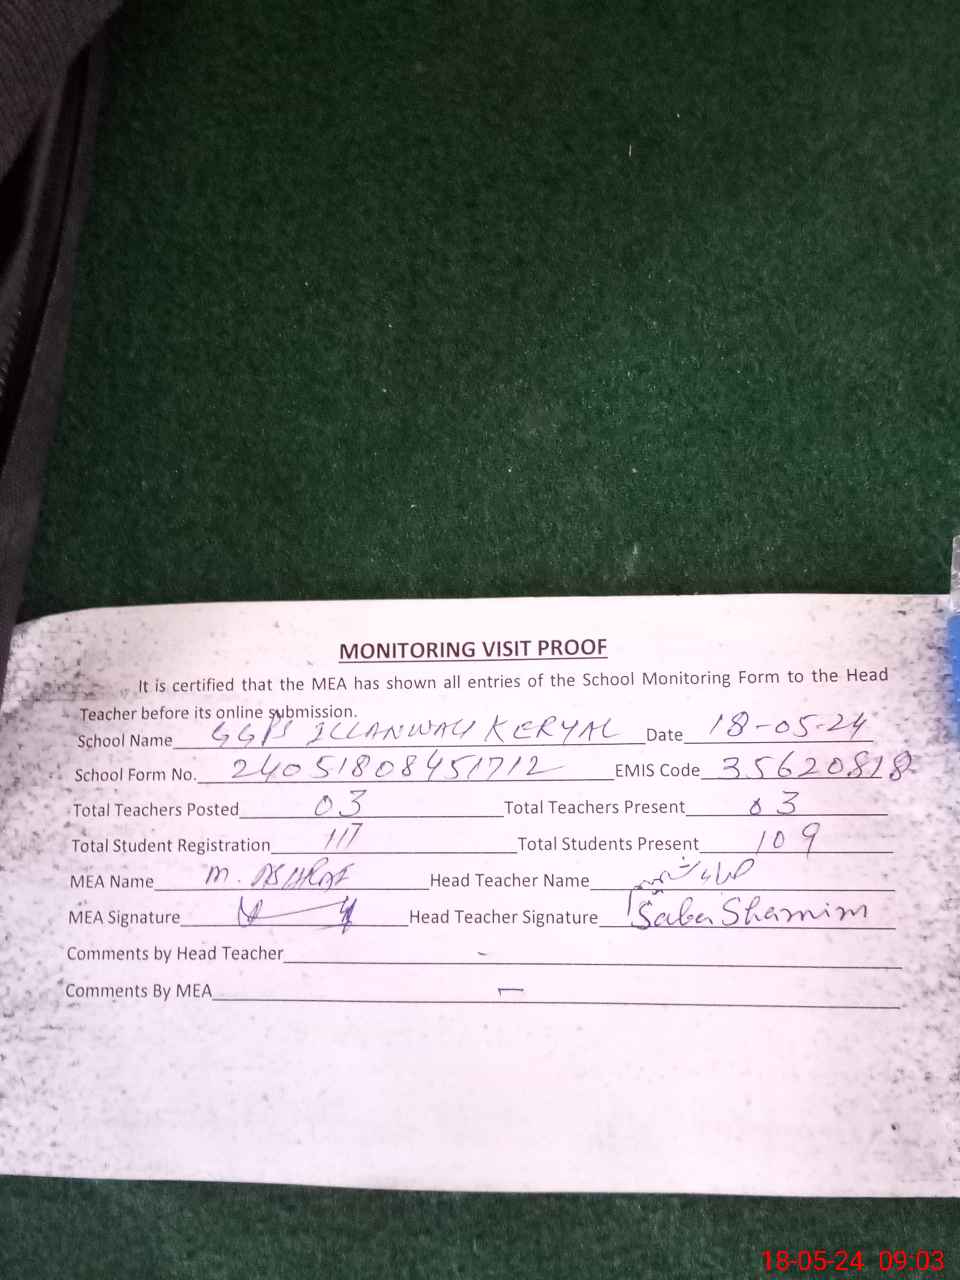 MONITORING VISIT PROOF
It is certified that the MEA has shown all entries of the School Monitoring Form to the Head
Teacher before its online submission.
School Name GGPS ILLANWALI KERYAL Date 18-05-24
School Form No. 24051808451712 EMIS Code 35620818
Total Teachers Posted 03 Total Teachers Present 03
Total Student Registration 117 Total Students Present 109
MEA Name M. ASHRAF Head Teacher Name
MEA Signature Head Teacher Signature Saba Shamim
Comments by Head Teacher -
Comments By MEA -
18-05-24 09:03